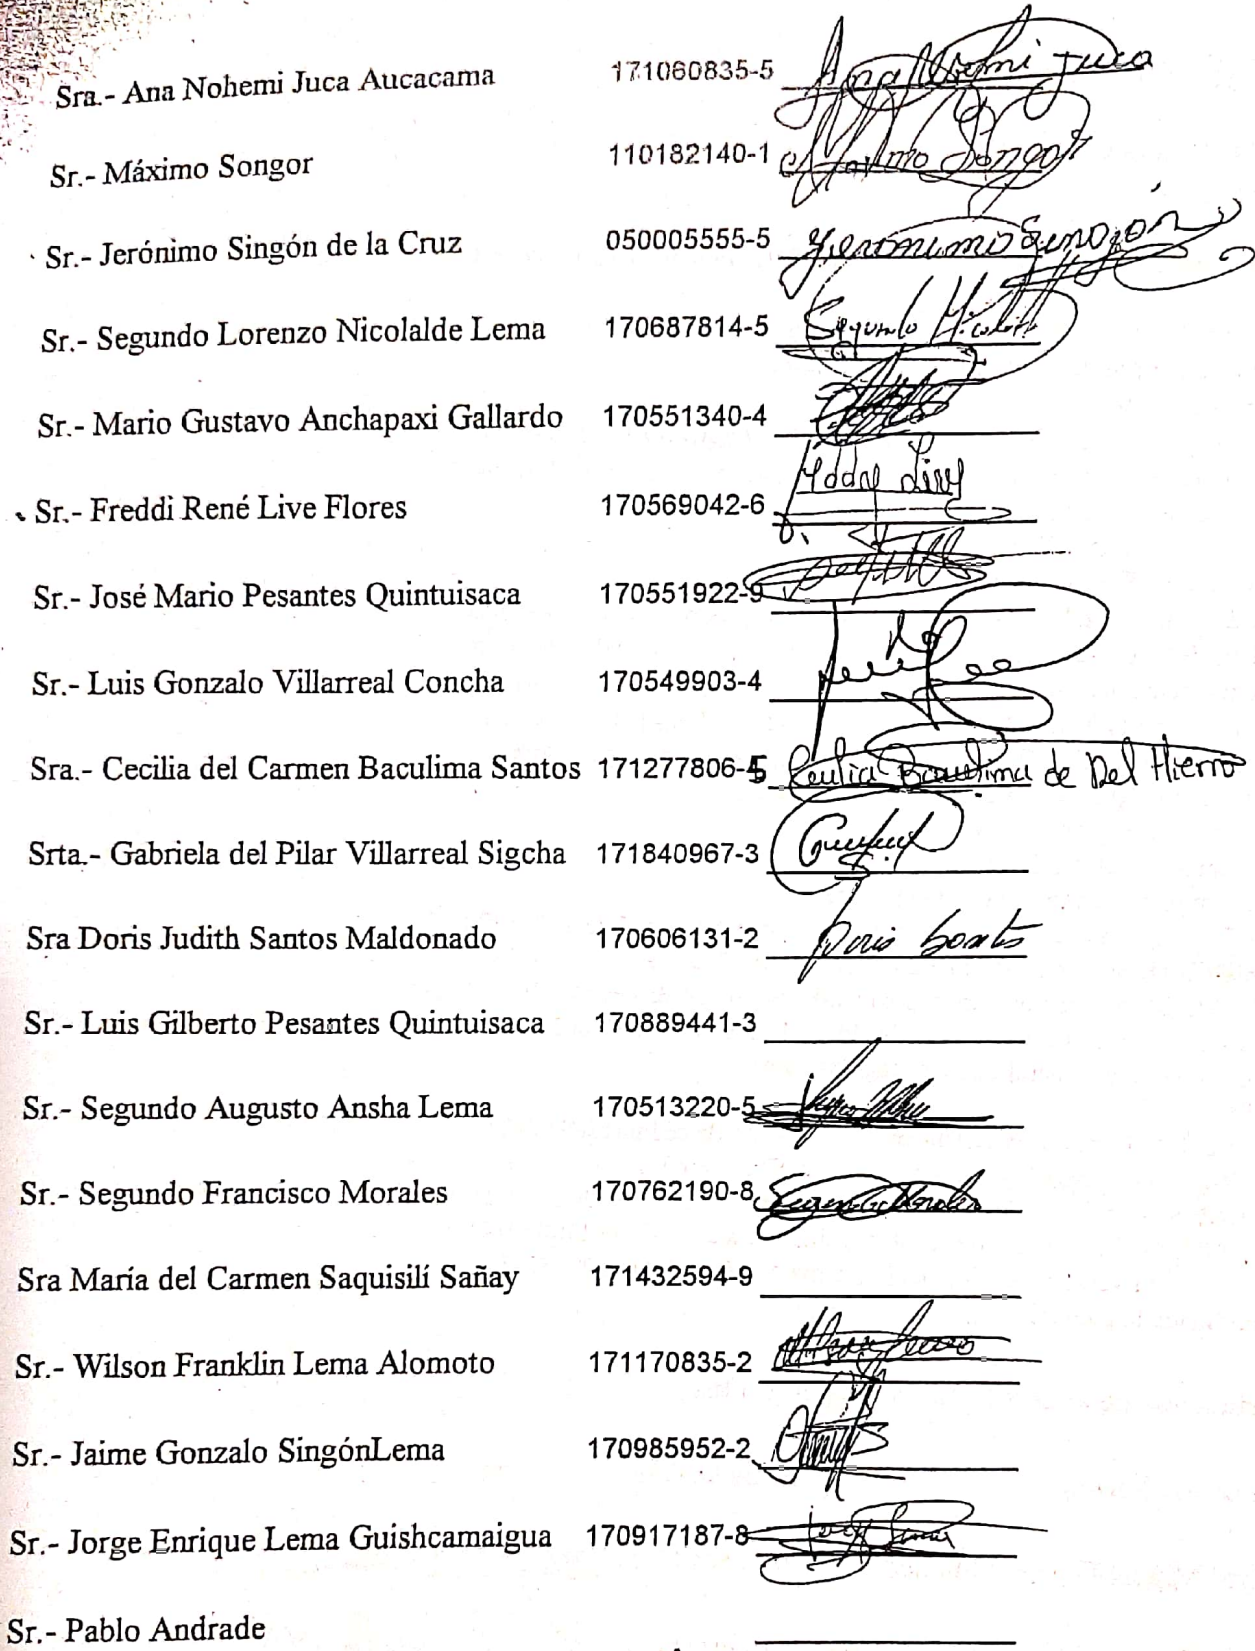 Sra.- Ana Nohemi Juca Aucacama 171060835-5 Ana Nohemi Juca
Sr.- Máximo Songor 110182140-1 Maximo Songor
Sr.- Jerónimo Singón de la Cruz 050005555-5 Jeronimo
Sr.- Segundo Lorenzo Nicolalde Lema 170687814-5 Segundo
Sr.- Mario Gustavo Anchapaxi Gallardo 170551340-4
Sr.- Freddi René Live Flores 170569042-6
Sr.- José Mario Pesantes Quintuisaca 170551922-9
Sr.- Luis Gonzalo Villarreal Concha 170549903-4
Sra.- Cecilia del Carmen Baculima Santos 171277806-5 Cecilia Baculima de Del Hierro
Srta.- Gabriela del Pilar Villarreal Sigcha 171840967-3
Sra Doris Judith Santos Maldonado 170606131-2 Doris Santos
Sr.- Luis Gilberto Pesantes Quintuisaca 170889441-3
Sr.- Segundo Augusto Ansha Lema 170513220-5
Sr.- Segundo Francisco Morales 170762190-8 Segundo Morales
Sra María del Carmen Saquisilí Sañay 171432594-9
Sr.- Wilson Franklin Lema Alomoto 171170835-2
Sr.- Jaime Gonzalo SingónLema 170985952-2
Sr.- Jorge Enrique Lema Guishcamaigua 170917187-8
Sr.- Pablo Andrade